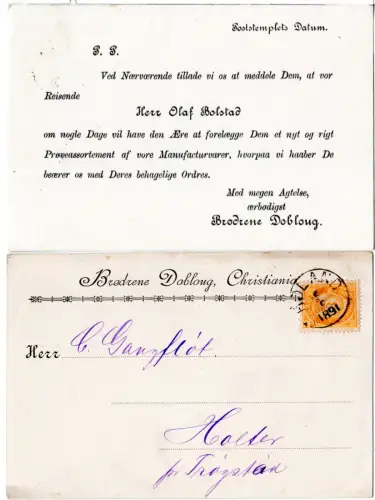 Poststemplets Datum.
P. P.
Ved Nærværende tillade vi os at meddele Dem, at vor
Reisende
Herr Olaf Bolstad
om nogle Dage vil have den Ære at forelægge Dem et nyt og rigt
Prøveassortement af vore Manufacturvarer, hvorpaa vi haaber De
beærer os med Deres behagelige Ordres.
Med megen Agtelse,
ærbødigst
Brødrene Dobloug.
Brødrene Dobloug, Christiania
1891
Herr C.
Holter
pr Trøgstad